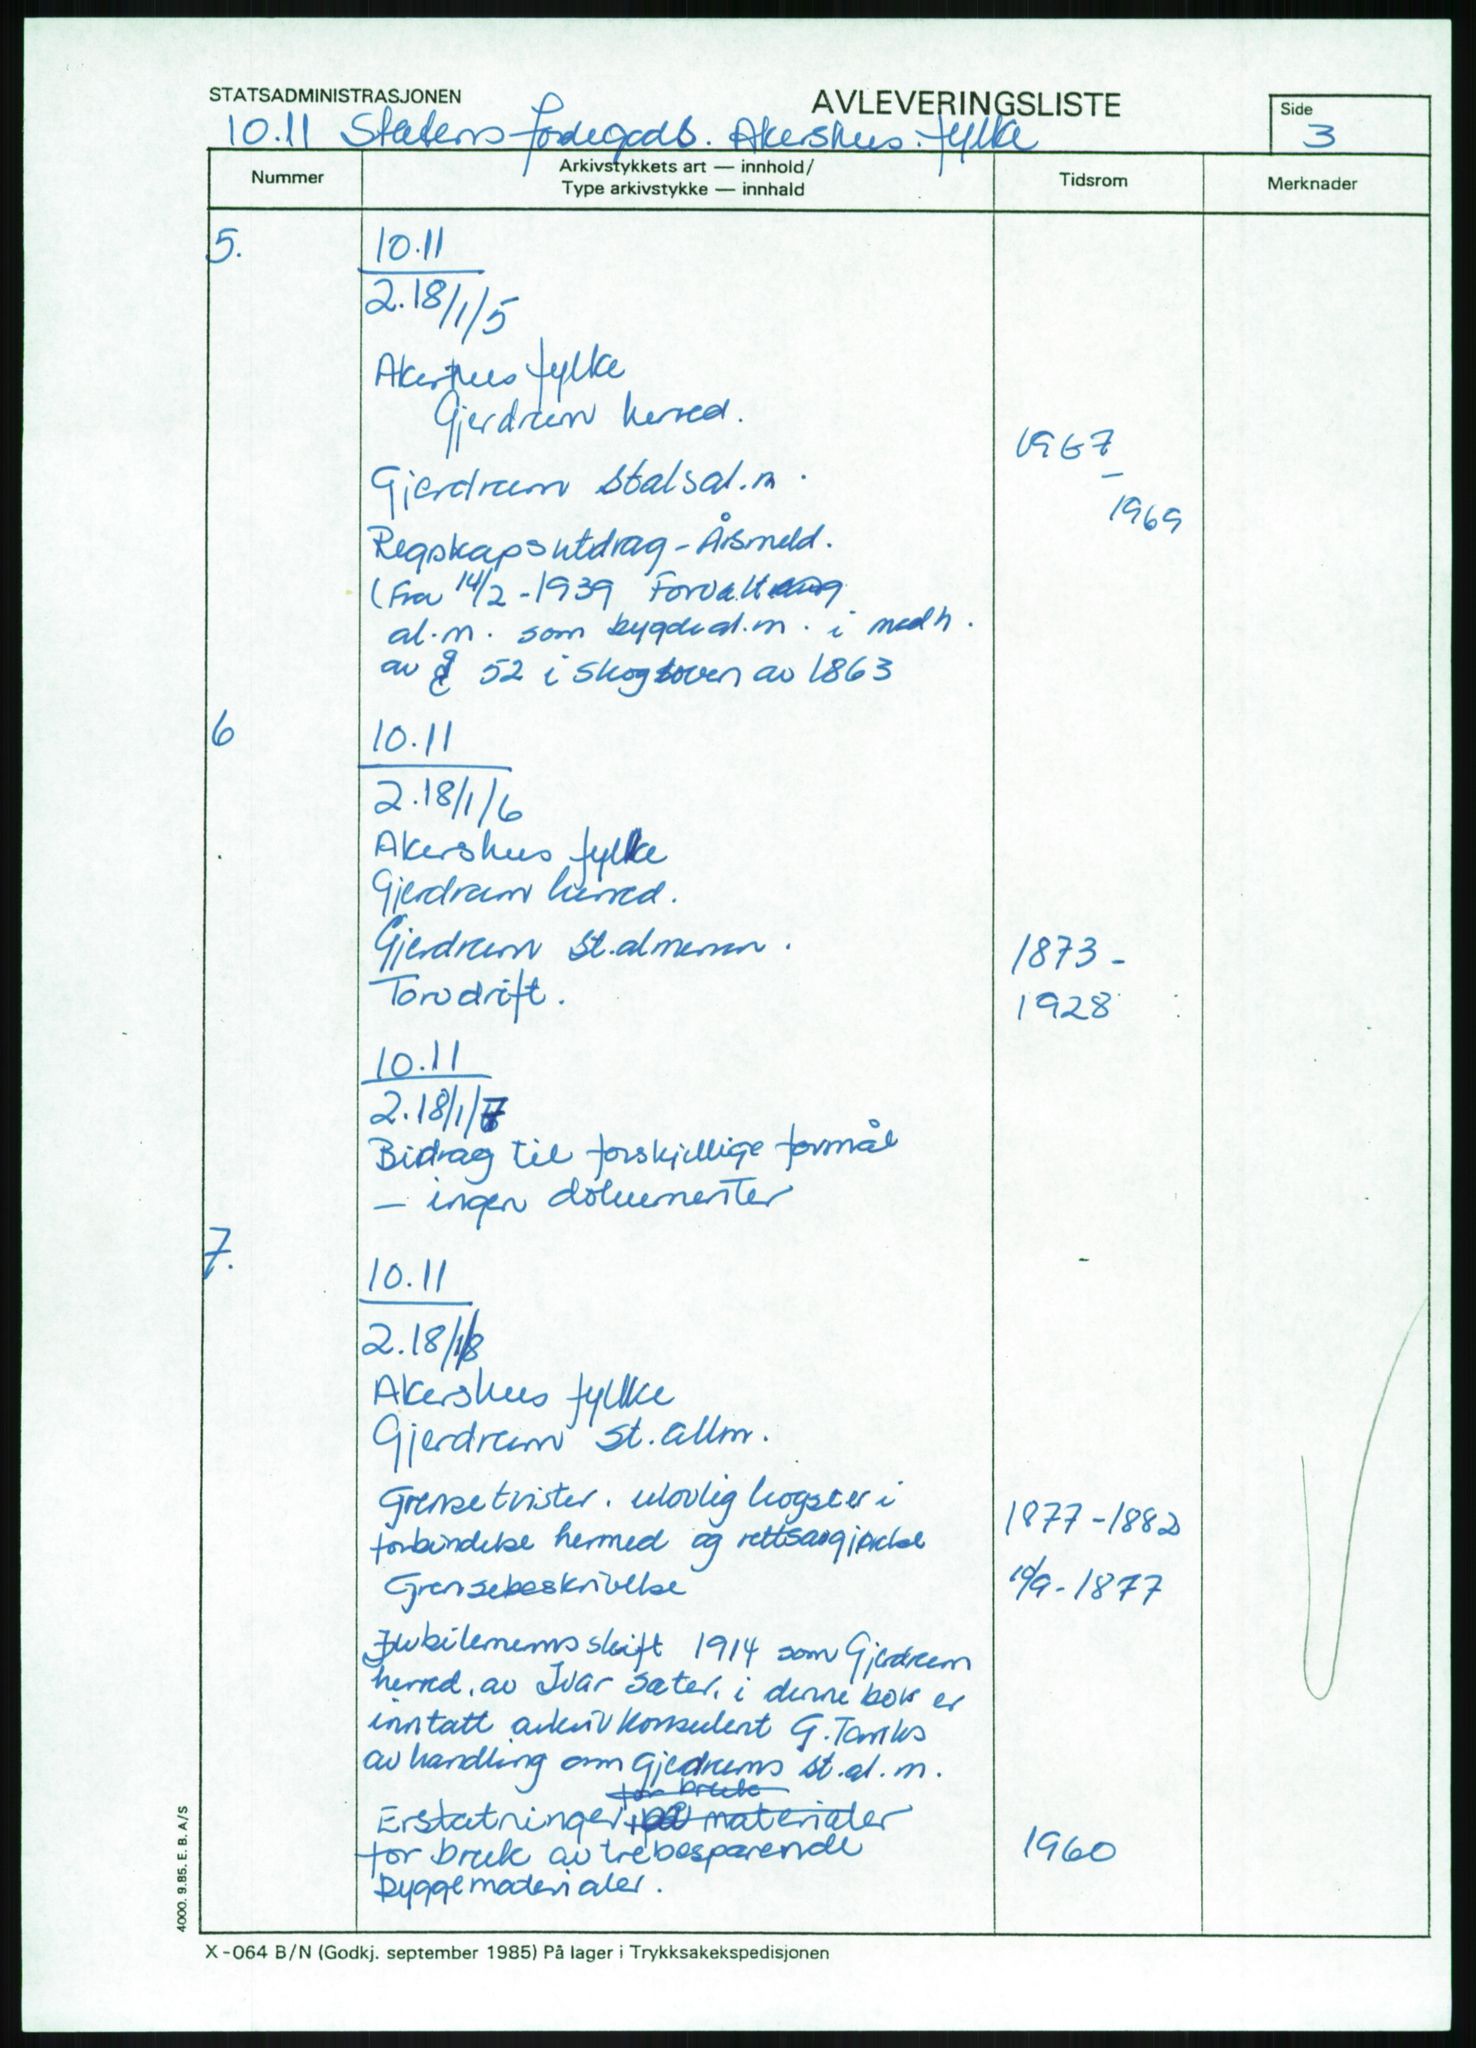 STATSADMINISTRASJONEN
AVLEVERINGSLISTE
Side
3
10.11 Statens jordegods. Akershus fylke
Nummer
Arkivstykkets art — innhold/
Type arkivstykke — innhald
Tidsrom
Merknader
5.
10.11
2.18/1/5
Akershus fylke
Gjerdrum herred.
1967
Gjerdrum statsal.m.
–
1969
Regnskapsutdrag - Årsmeld.
(Fra 14/2 - 1939 Forvaltning
al.m. som bygdeal.m. i medh.
av § 52 i skogloven av 1863
6
10.11
2.18/1/6
Akershus fylke
Gjerdrum herred.
Gjerdrum st.almenn.
1873 -
Torvdrift.
1928
10.11
2.18/1/7
Bidrag til forskjellige formål
— ingen dokumenter
7.
10.11
2.18/1/8
Akershus fylke
Gjerdrum st.allm.
Grensetvister. ulovlig hogster i
1877-1882
forbindelse hermed og rettsavgjørelse
Grensebeskrivelse
10/9 - 1877
Jubileumsskift 1914 som Gjerdrum
herred, av Ivar Sæter, i denne bok er
inntatt arkivkonsulent G. Tanks
avhandling om Gjedrums st.al.m.
for bruk
Erstatninger på materialer
for bruk av trebesparende
1960
byggematerialer.
4000. 9.85. E. B. A/S
X-064 B/N (Godkj. september 1985) På lager i Trykksakekspedisjonen